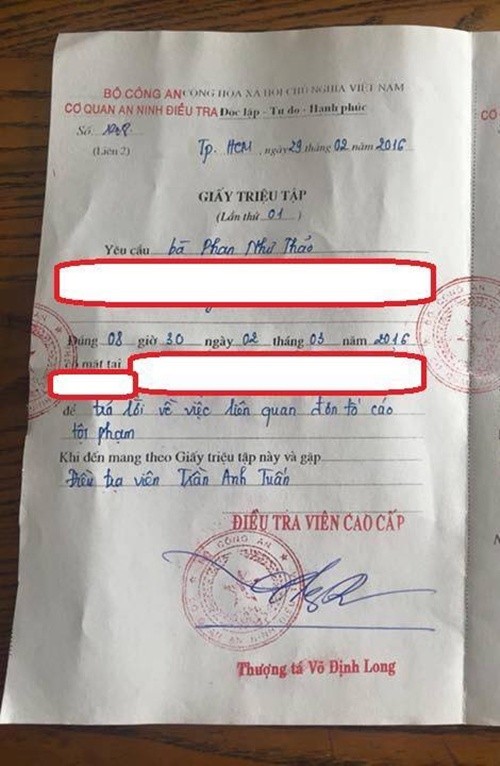 BỘ CÔNG AN CỘNG HÒA XÃ HỘI CHỦ NGHĨA VIỆT NAM
CƠ QUAN AN NINH ĐIỀU TRA Độc lập - Tự do - Hạnh phúc
Số:
(Liên 2) Tp. HCM, ngày 29 tháng 02 năm 2016
GIẤY TRIỆU TẬP
(Lần thứ 01)
Yêu cầu bà Phan Như Thảo
Đúng 08 giờ 30 ngày 02 tháng 03 năm 2016
có mặt tại
để trả lời về việc liên quan đơn tố cáo
tội phạm
Khi đến mang theo Giấy triệu tập này và gặp
Điều tra viên Trần Anh Tuấn
ĐIỀU TRA VIÊN CAO CẤP
BỘ CÔNG AN
Thượng tá Võ Định Long